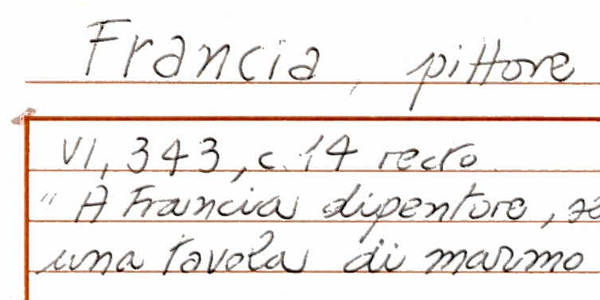 Francia, pittore
VI, 343, c. 14 recto
" A Francia dipentore,
una tavola di marmo